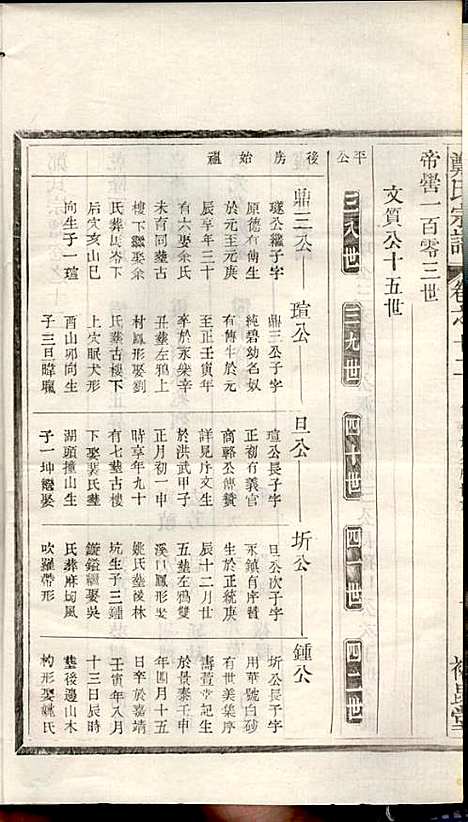 鄭氏宗譜
卷之十二
帝嚳一百零三世
文質公十五世
平公
後房始祖
三八世
三九世
四十世
四一世
四二世
鼎三公
瑄公
旦公
圻公
鍾公
璲公繼子字
原德有傳生
於元至元庚
辰享年三十
有六娶余氏
未育同塟古
樓下繼娶余
氏葬馬岺下
后穴亥山巳
向生子一瑄
鼎三公子字
純碧幼名奴
有傳生於元
至正壬寅年
卒於永樂辛
丑塟左鴉上
村鳳形娶劉
氏塟古樓下
上穴眠犬形
酉山卯向生
子三旦暐矖
瑄公長子字
正初有義官
商輅公傳贊
詳見序文生
於洪武甲子
正月初一申
時享年九十
有七塟古樓
下娶裴氏塟
湖頭撞山生
子一坤繼娶
旦公次子字
永鎮有序贊
生於正統庚
辰十二月廿
五塟左鴉雙
溪口鳳形娶
姚氏塟後林
坑生子三鍾
鏇鎧繼娶吳
氏葬麻坳風
吹羅帶形
圻公長子字
用華號白砂
有世美集序
壽萱堂記生
於景泰壬申
年四月十五
日卒於嘉靖
壬寅年八月
十三日辰時
塟後邊山木
杓形娶姚氏